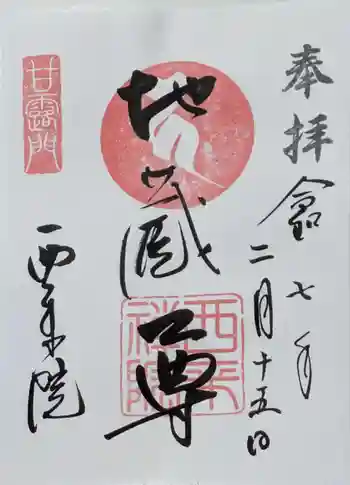 奉拝
令和七年
二月十五日
地蔵尊
甘露門
西来院
西来禅院